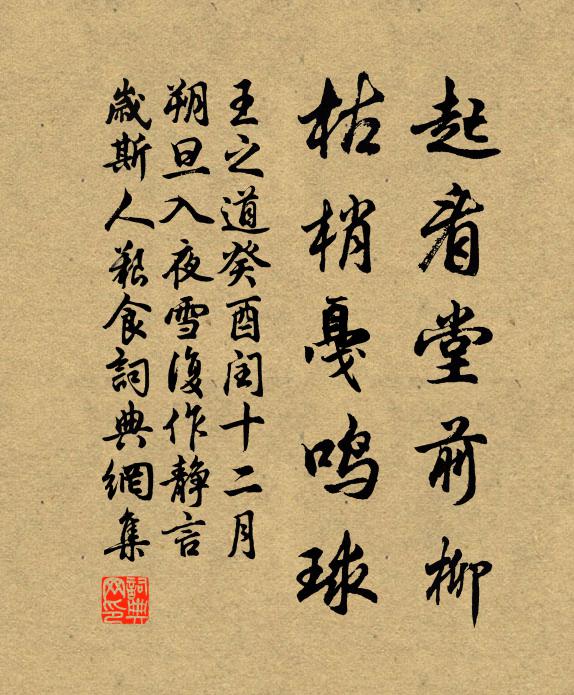 起看堂前柳
枯梢戛鸣球
王之道癸酉闰十二月
朔旦入夜雪復作静言
歲斯人艱食詞典網集
詞典
网印